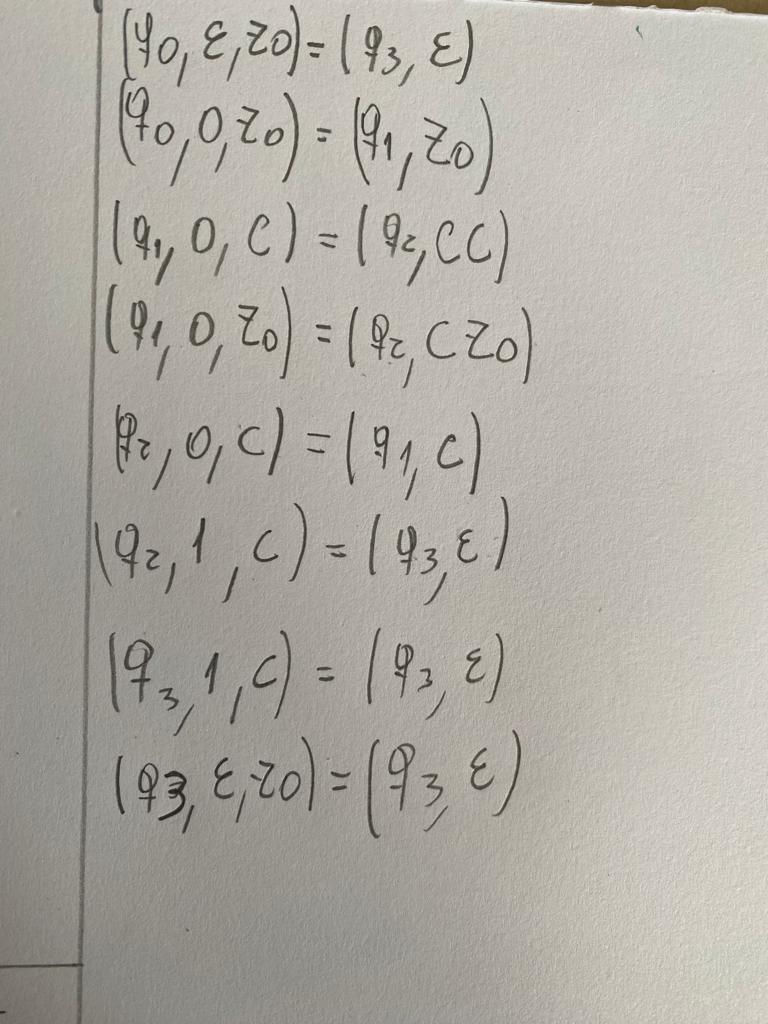 (q0, ε, z0) = (q3, ε)
(q0, 0, z0) = (q1, z0)
(q1, 0, C) = (q2, CC)
(q1, 0, z0) = (q2, C z0)
(q2, 0, C) = (q1, C)
(q2, 1, C) = (q3, ε)
(q3, 1, C) = (q3, ε)
(q3, ε, z0) = (q3, ε)